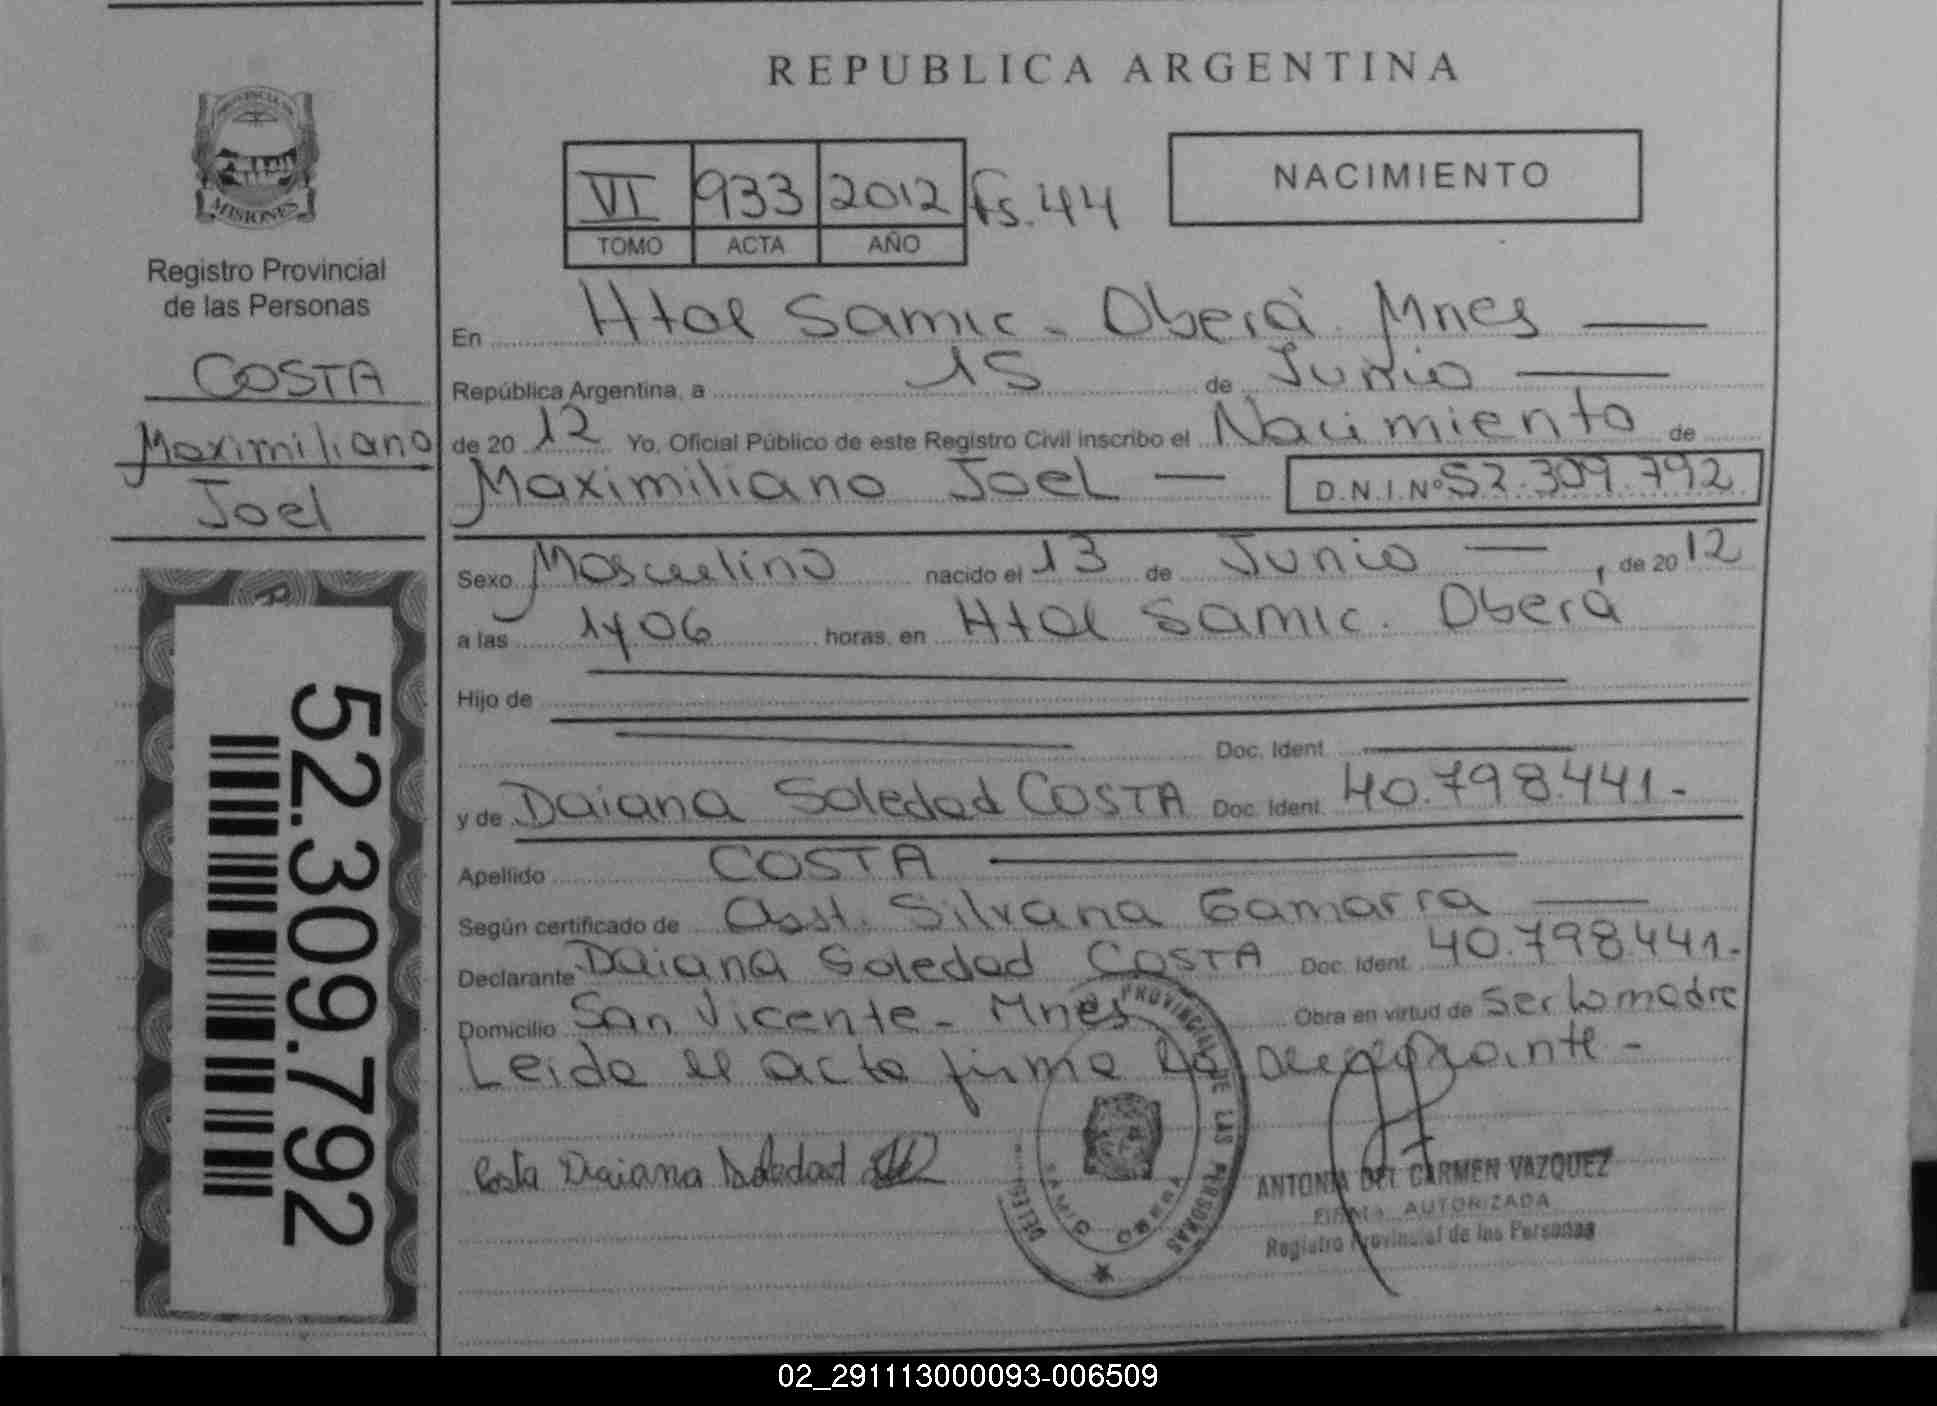 REPUBLICA ARGENTINA
PROVINCIA DE
MISIONES
Registro Provincial
de las Personas
COSTA
Maximiliano
Joel
52.309.792
VI 933 2012 Fs. 44
TOMO ACTA AÑO
NACIMIENTO
En Htal Samic - Oberá Mnes
República Argentina, a 15 de Junio
de 2012 Yo, Oficial Público de este Registro Civil inscribo el Nacimiento de
Maximiliano Joel D.N.I. Nº 52.309.792
Sexo Masculino nacido el 13 de Junio, de 2012
a las 1406 horas, en Htal Samic. Oberá
Hijo de
Doc. Ident.
y de Daiana Soledad COSTA Doc. Ident. 40.798.441-
Apellido COSTA
Según certificado de Obst. Silvana Gamarra
Declarante Daiana Soledad COSTA Doc. Ident. 40.798.441-
Domicilio San Vicente - Mnes Obra en virtud de Ser la madre
Leida el acta firma la
Costa Daiana Soledad
PROVINCIAL DE LAS PERSONAS
ANTONIA DEL CARMEN VAZQUEZ
FIRMA AUTORIZADA
Registro Provincial de las Personas
02_291113000093-006509